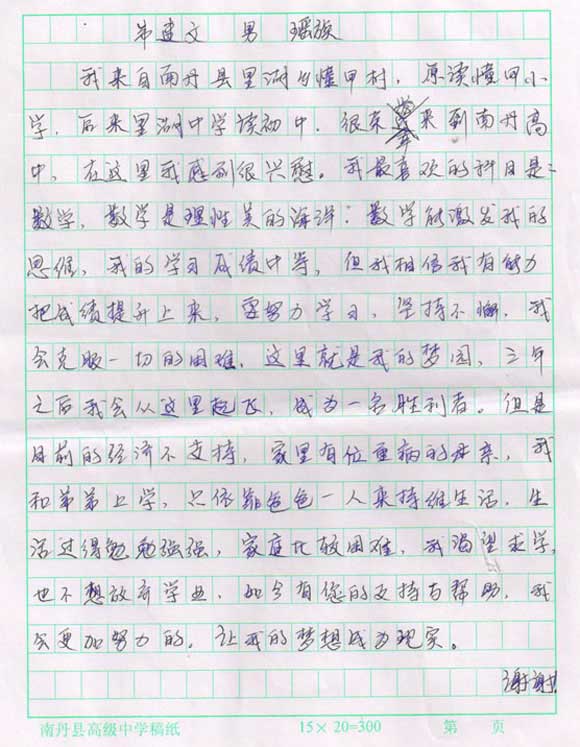 建文 男 瑶族
我来自南丹县里湖乡懂甲村，原读懂甲小
学，后来里湖中学读初中．很荣来到南丹高
中，在这里我感到很兴慰。我最喜欢的科目是：
数学，数学是理性美的海洋；数学能激发我的
思维，我的学习成绩中等，但我相信我有能力
把成绩提升上来，要努力学习，坚持不懈，我
会克服一切的困难．这里就是我的梦园，三年
之后我会从这里起飞，成为一名胜利者。但是
目前的经济不支持，家里有位重病的母亲，我
和弟弟上学，只依靠爸爸一人来持维生活．生
活过得勉勉强强，家庭比较困难．我渴望求学，
也不想放弃学业．如今有您的支持与帮助，我
会更加努力的．让我的梦想成为现实。
谢谢！
南丹县高级中学稿纸 15×20=300 第 页